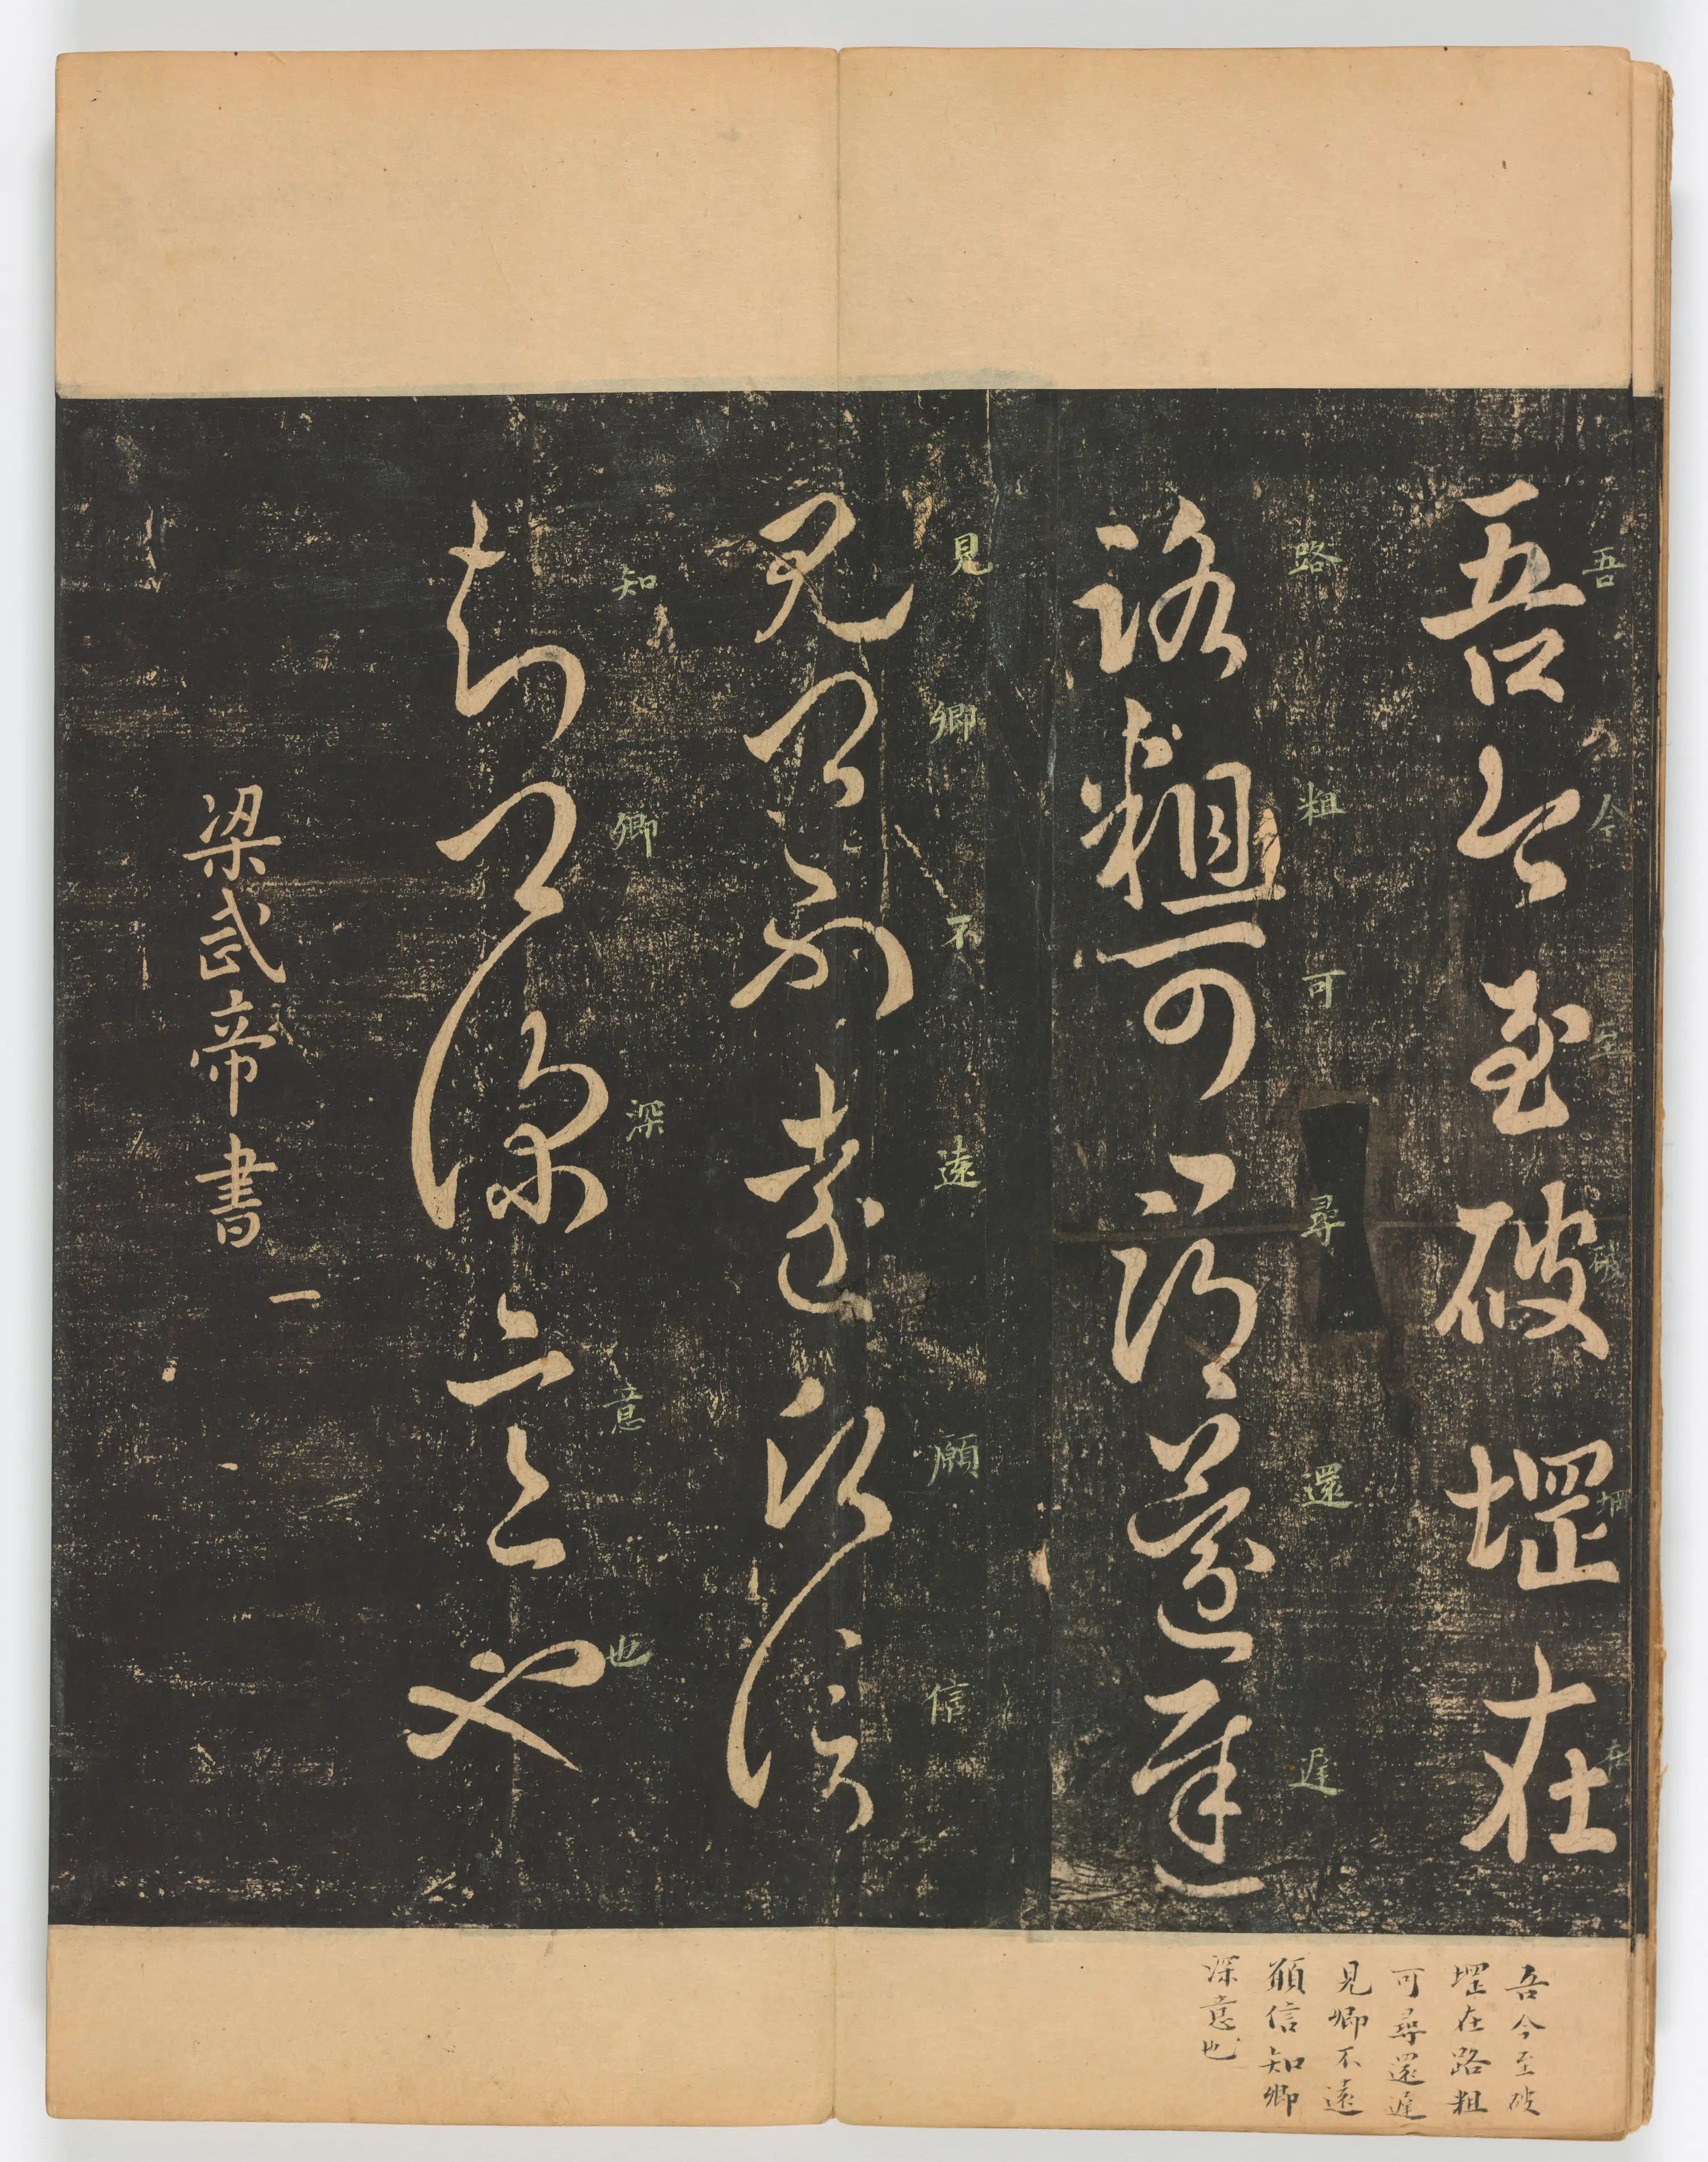 吾今至破堽在
吾今至破堽在
路粗可尋還遲
路粗可尋還遲
見卿不遠願信
見卿不遠願信
知卿深意也
知卿深意也
梁武帝書
一
吾今至破
堽在路粗
可尋還遲
見卿不遠
願信知卿
深意也